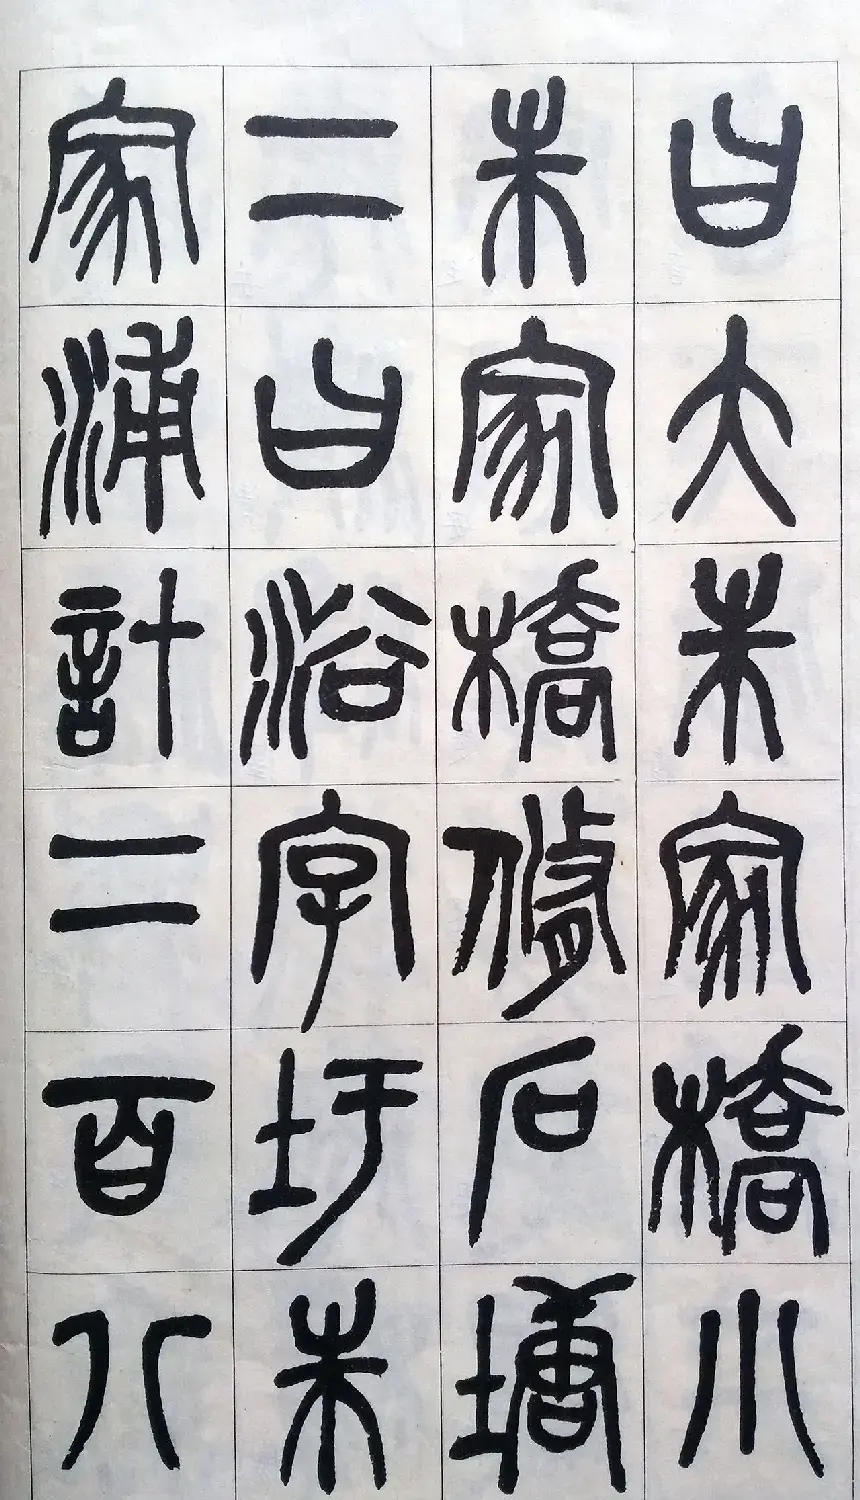 曰大朱家橋小
朱家橋修石塘
二曰浴字圩朱
家浦計二百八